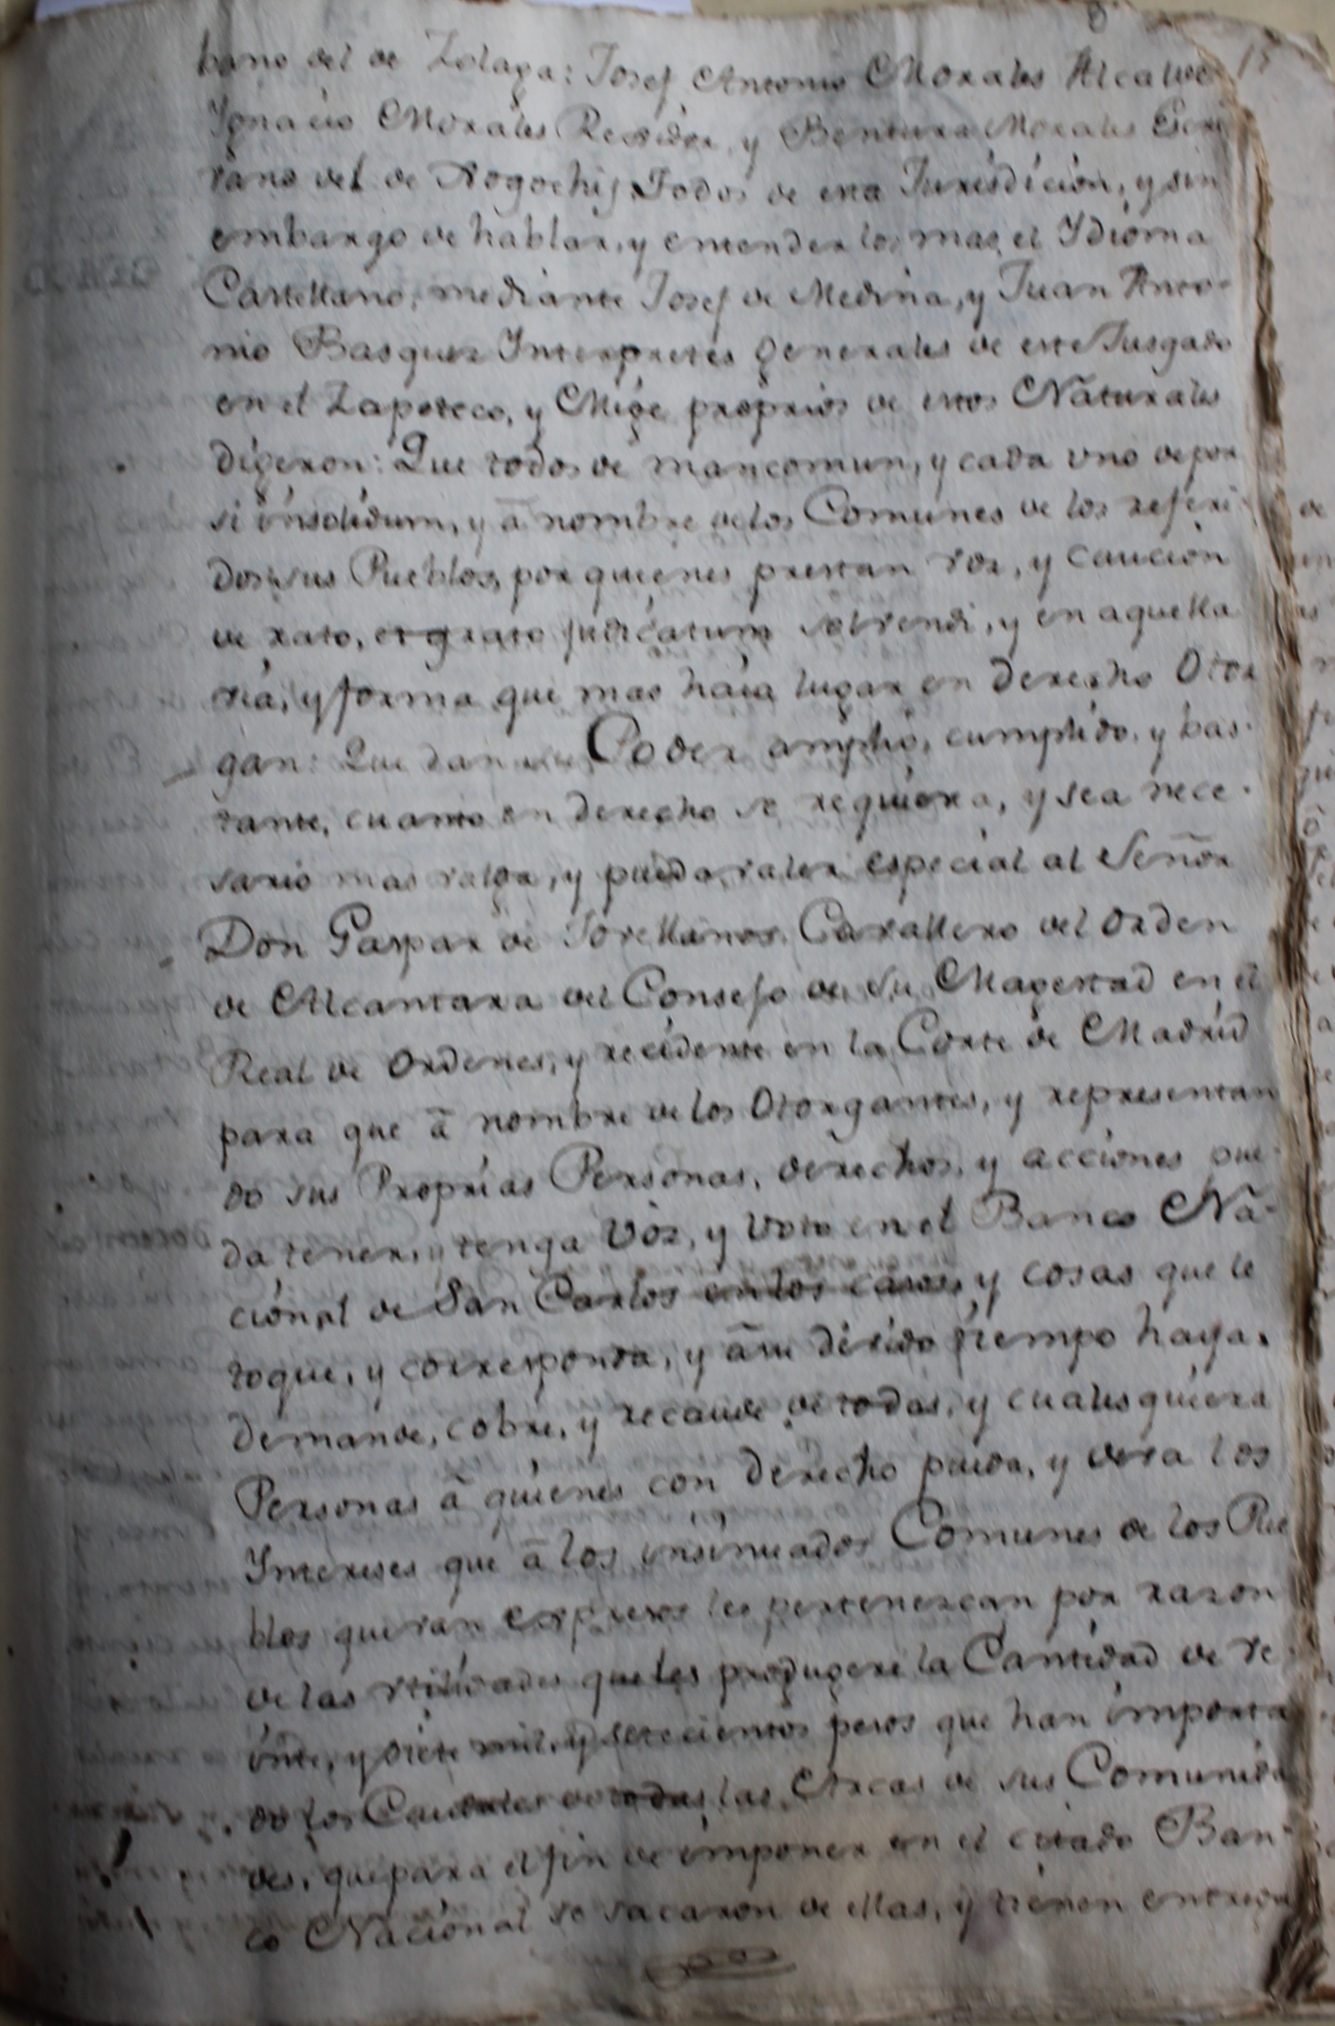 15
bano del de Zolaga: Josef Antonio Morales Alcalde
Ignacio Morales Regidor, y Bentura Morales Escri
vano del de Yogochij Todos de esta Jurisdicion, y sin
embargo de hablar, y entender los mas el Ydioma
Castellano, mediante Josef de Medina, y Juan Anto-
nio Basquez Interpretes Generales de este Jusgado
en el Zapoteco, y Mige proprios de estos Naturales
digeron: Que todos de mancomun, y cada uno de por
si insolidum, y â nombre de los Comunes de los referi
dos sus Pueblos, por quienes prestan voz, y caucion
de rato, et grato judicatum solvendi, y en aquella
via, y forma que mas haia lugar en derecho Otor
gan: Que dan su Poder amplio, cumplido, y bas-
tante, cuanto en derecho se requiera, y sea nece-
sario mas valga, y pueda valer especial al Señor
Don Gaspar de Jovellanos Cavallero del orden
de Alcantara del Consejo de Su Magestad en el
Real de Ordenes, y recidente en la Corte de Madrid
para que â nombre de los Otorgantes, y representan
do sus Proprias Personas, derechos, y acciones pue-
da tener, y tenga Voz, y Voto en el Banco Na-
cional de San Carlos en los casos, y cosas que le
toque, y corresponda, y â su devido tiempo haya,
demande, cobre, y recaude de todas, y cualesquiera
Personas â quienes con derecho pueda, y deva los
Intereses que â los insinuados Comunes de los Pue
blos que van expresos les pertenezcan por razon
de las utilidades que les produgere la Cantidad de ve
inte, y siete mil, y setecientos pesos que han importa
do los Caudales de todas las Arcas de sus Comunida
des, que para el fin de imponer en el citado Ban-
co Nacional se sacaron de ellas, y tienen entrega